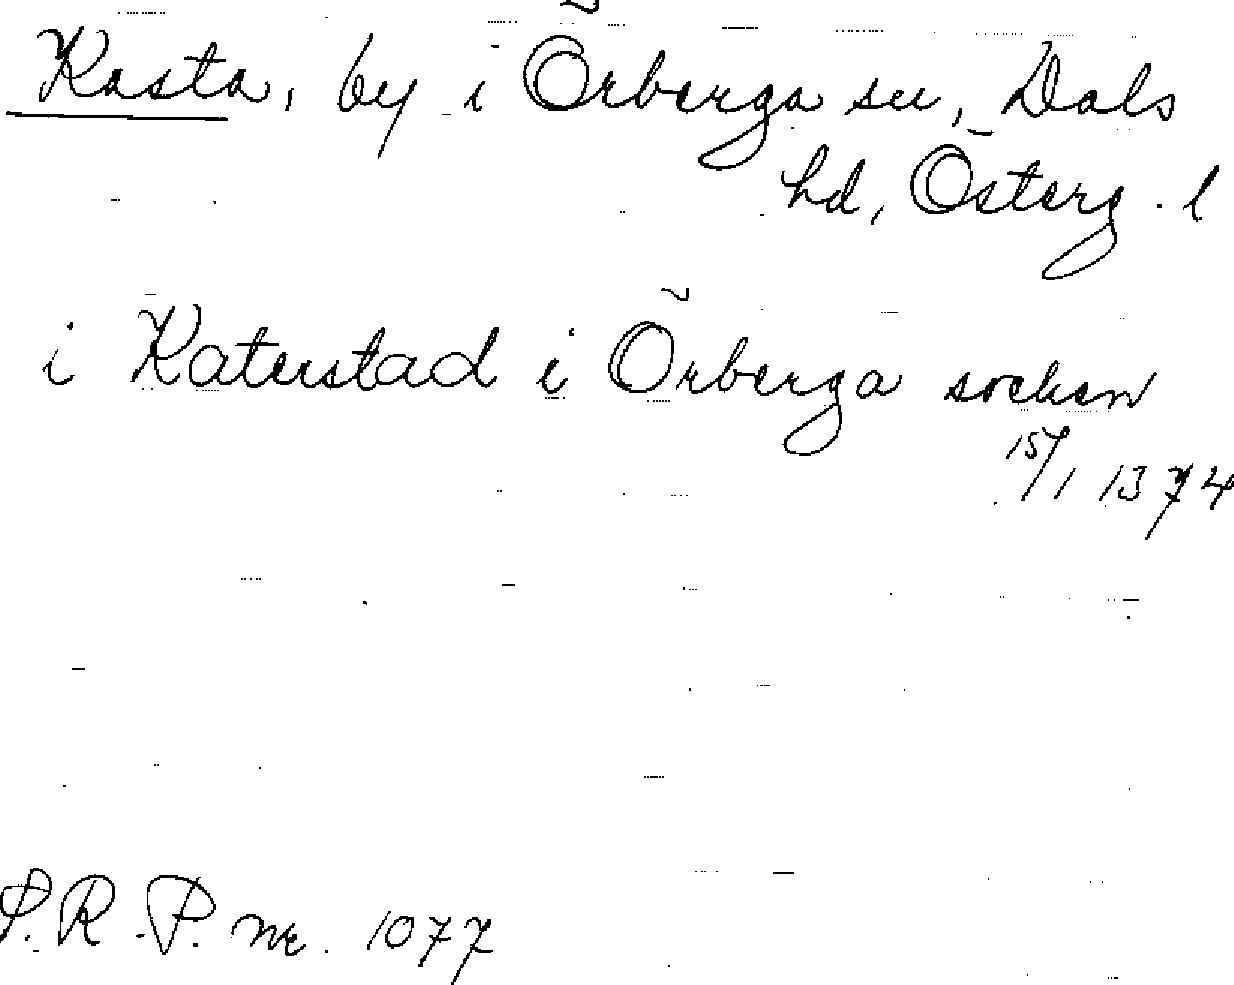 Kasta, by i Örberga sn, Dals
hd, Österg. l
i Katerstad i Örberga socken
15/1 1374
S.R.P. nr. 1077